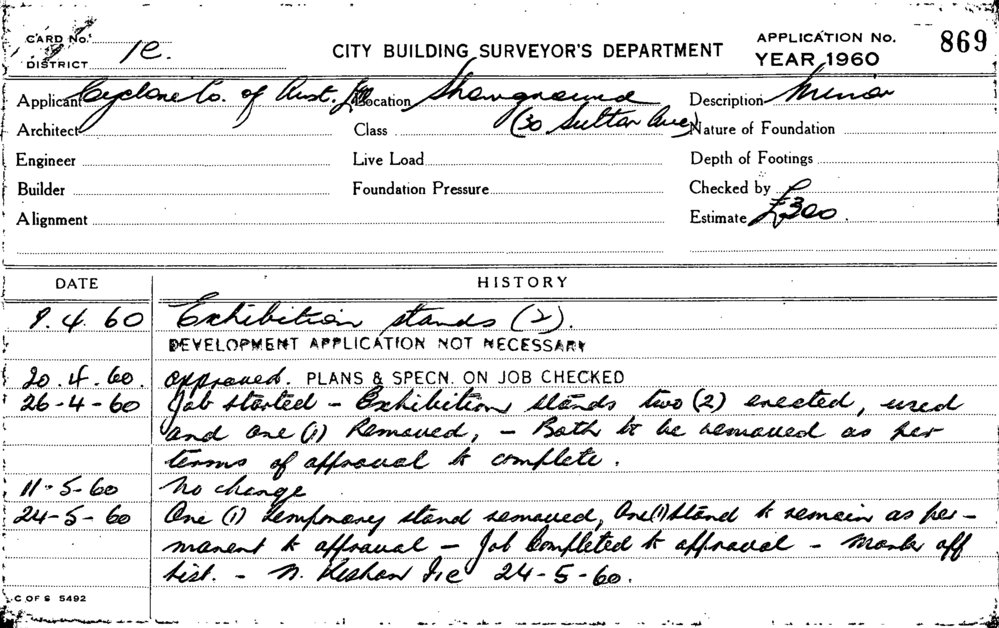 CARD No. CITY BUILDING SURVEYOR'S DEPARTMENT APPLICATION No. 869
DISTRICT 1C. YEAR 1960
Applicant Cyclone Co. of Aust. Location Showground Description Minor
Architect Class (30 Sultan Ave) Nature of Foundation
Engineer Live Load Depth of Footings
Builder Foundation Pressure Checked by
Alignment Estimate £300.
DATE HISTORY
9.4.60 Exhibition stands (2).
DEVELOPMENT APPLICATION NOT NECESSARY
20.4.60. approved. PLANS & SPECN. ON JOB CHECKED
26-4-60 Job started – Exhibition stands two (2) erected, used
and one (1) Removed, – Both to be removed as per
terms of approval to complete.
11-5-60 No change
24-5-60 One (1) temporary stand removed, One (1) stand to remain as per-
manent to approval – Job completed to approval – Mark off
list. – N. 24-5-60.
C OF S 5492